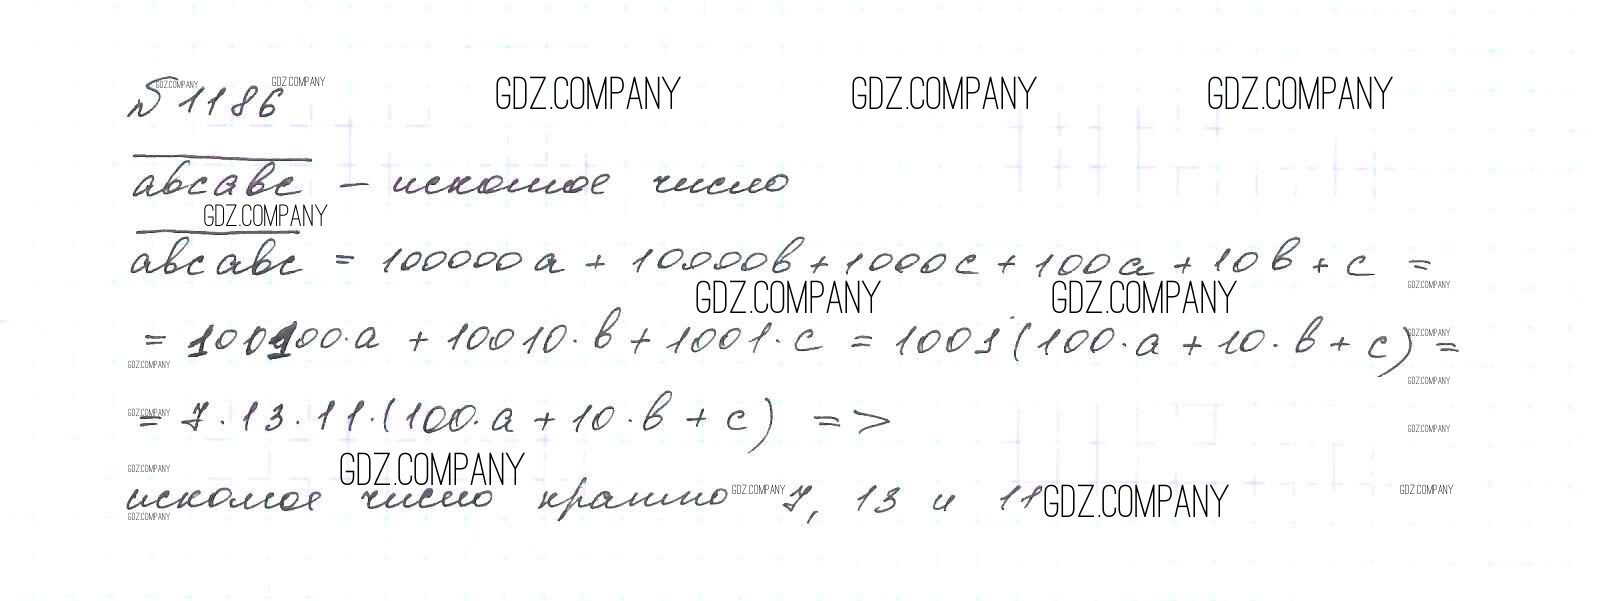 № 1186
GDZ.COMPANY GDZ.COMPANY GDZ.COMPANY GDZ.COMPANY GDZ.COMPANY
авсавс – искомое число
GDZ.COMPANY
авсавс = 100000а + 10000в + 1000с + 100а + 10в + с =
GDZ.COMPANY GDZ.COMPANY GDZ.COMPANY
= 100100·а + 10010·в + 1001·с = 1001(100·а + 10·в + с) =
GDZ.COMPANY GDZ.COMPANY GDZ.COMPANY
= 7·13·11·(100·а + 10·в + с) =>
GDZ.COMPANY GDZ.COMPANY
GDZ.COMPANY GDZ.COMPANY
искомое число кратно 7, 13 и 11
GDZ.COMPANY GDZ.COMPANY GDZ.COMPANY
GDZ.COMPANY